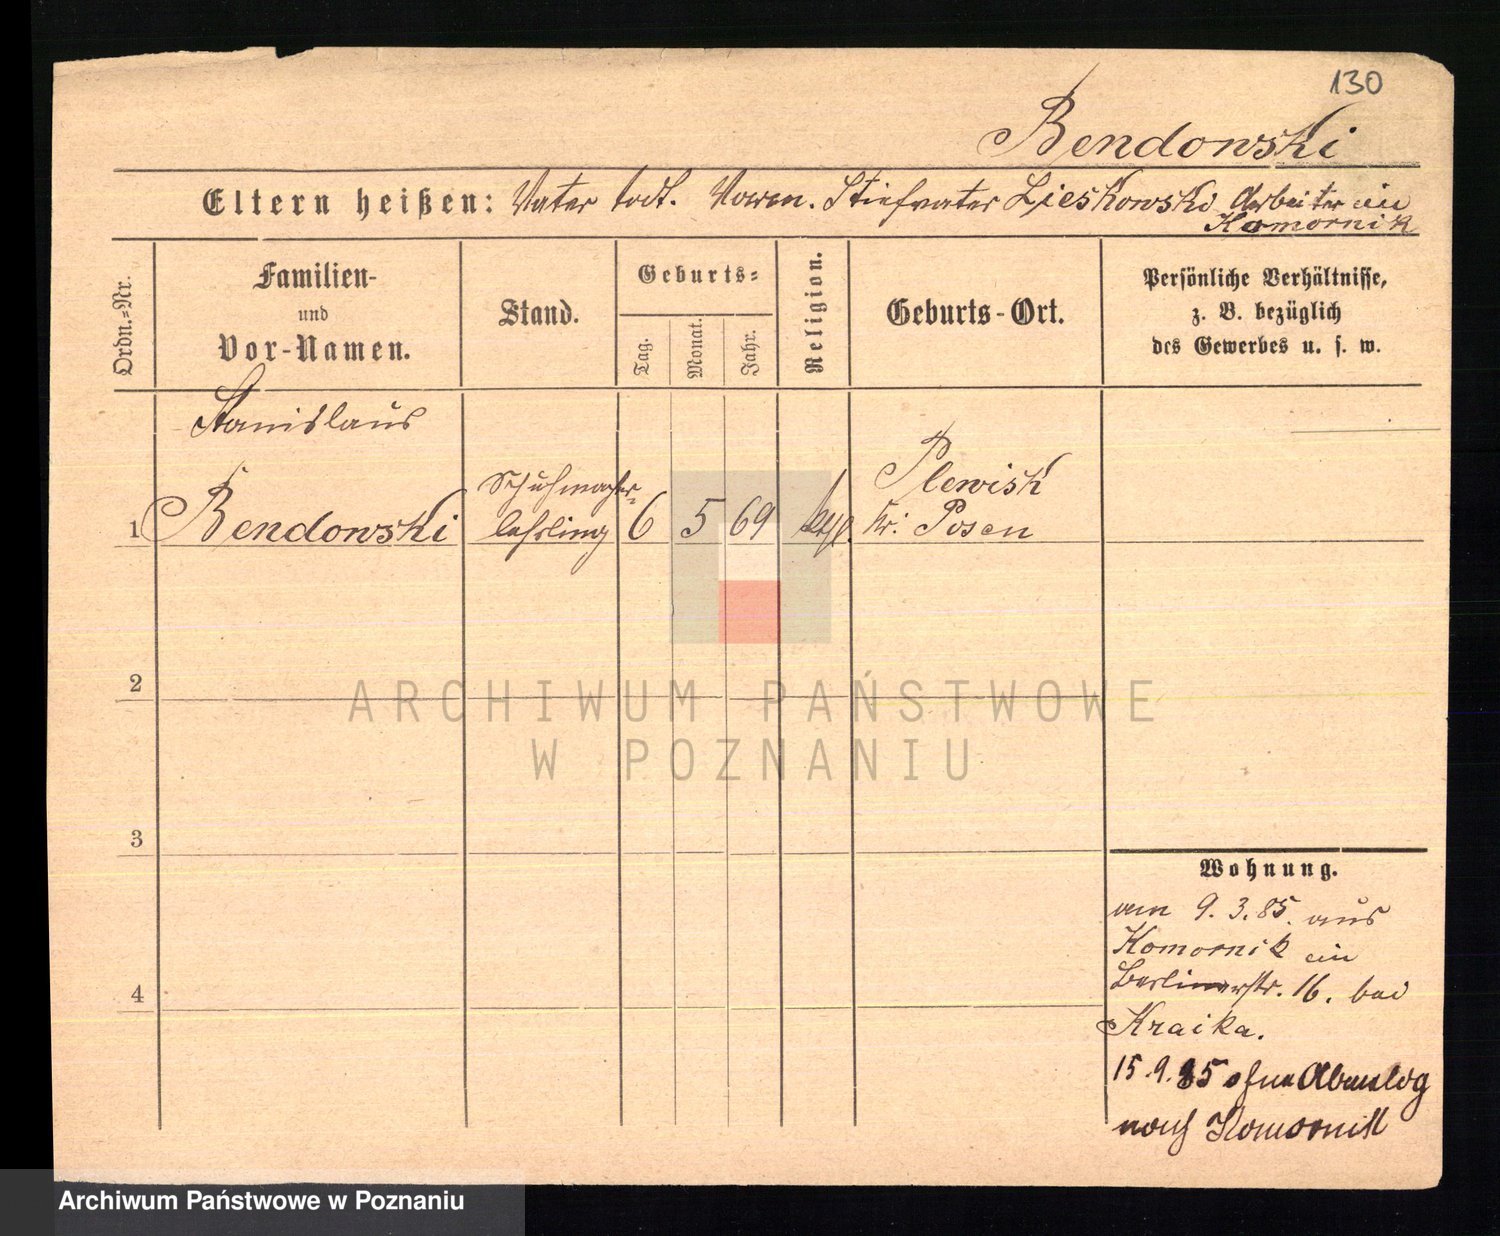 130
Bendowski
Eltern heißen: Vater todt. Vorm. Stiefvater Lieskowski Arbeiter in
Komornik
Ordn.-Nr.
Familien-
und
Vor-Namen.
Stand.
Geburts-
Tag.
Monat.
Jahr.
Religion.
Geburts-Ort.
Persönliche Verhältnisse,
z. B. bezüglich
des Gewerbes u. s. w.
Stanislaus
1 Bendowski
Schuhmacher-
lehrling
6 5 69
Plewisk
Kr. Posen
2
3
4
Wohnung.
am 9.3.85. aus
Komornik in
Berlinerstr. 16. bei
Kraika.
15.9.85 ohne
nach Komornik
ARCHIWUM PAŃSTWOWE
W POZNANIU
Archiwum Państwowe w Poznaniu